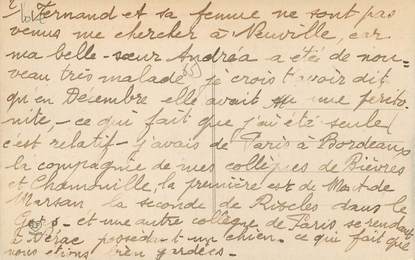 Fernand et sa femme ne sont pas
venus me chercher à Neuville, car
ma belle-sœur Andréa a été de nou-
veau très malade, je crois t'avoir dit
qu'en Décembre elle avait eu une périto-
nite, - ce qui fait que j'ai été seule
c'est relatif - j'avais de Paris à Bordeaux
la compagnie de mes collègues de Bièvres
et Chamouille, la première est de Mont de
Marsan la seconde de Riscles dans le
Gers - et une autre collègue de Paris, se rendant
à Nérac possédant un chien - ce qui fait que
nous étions bien gardées -